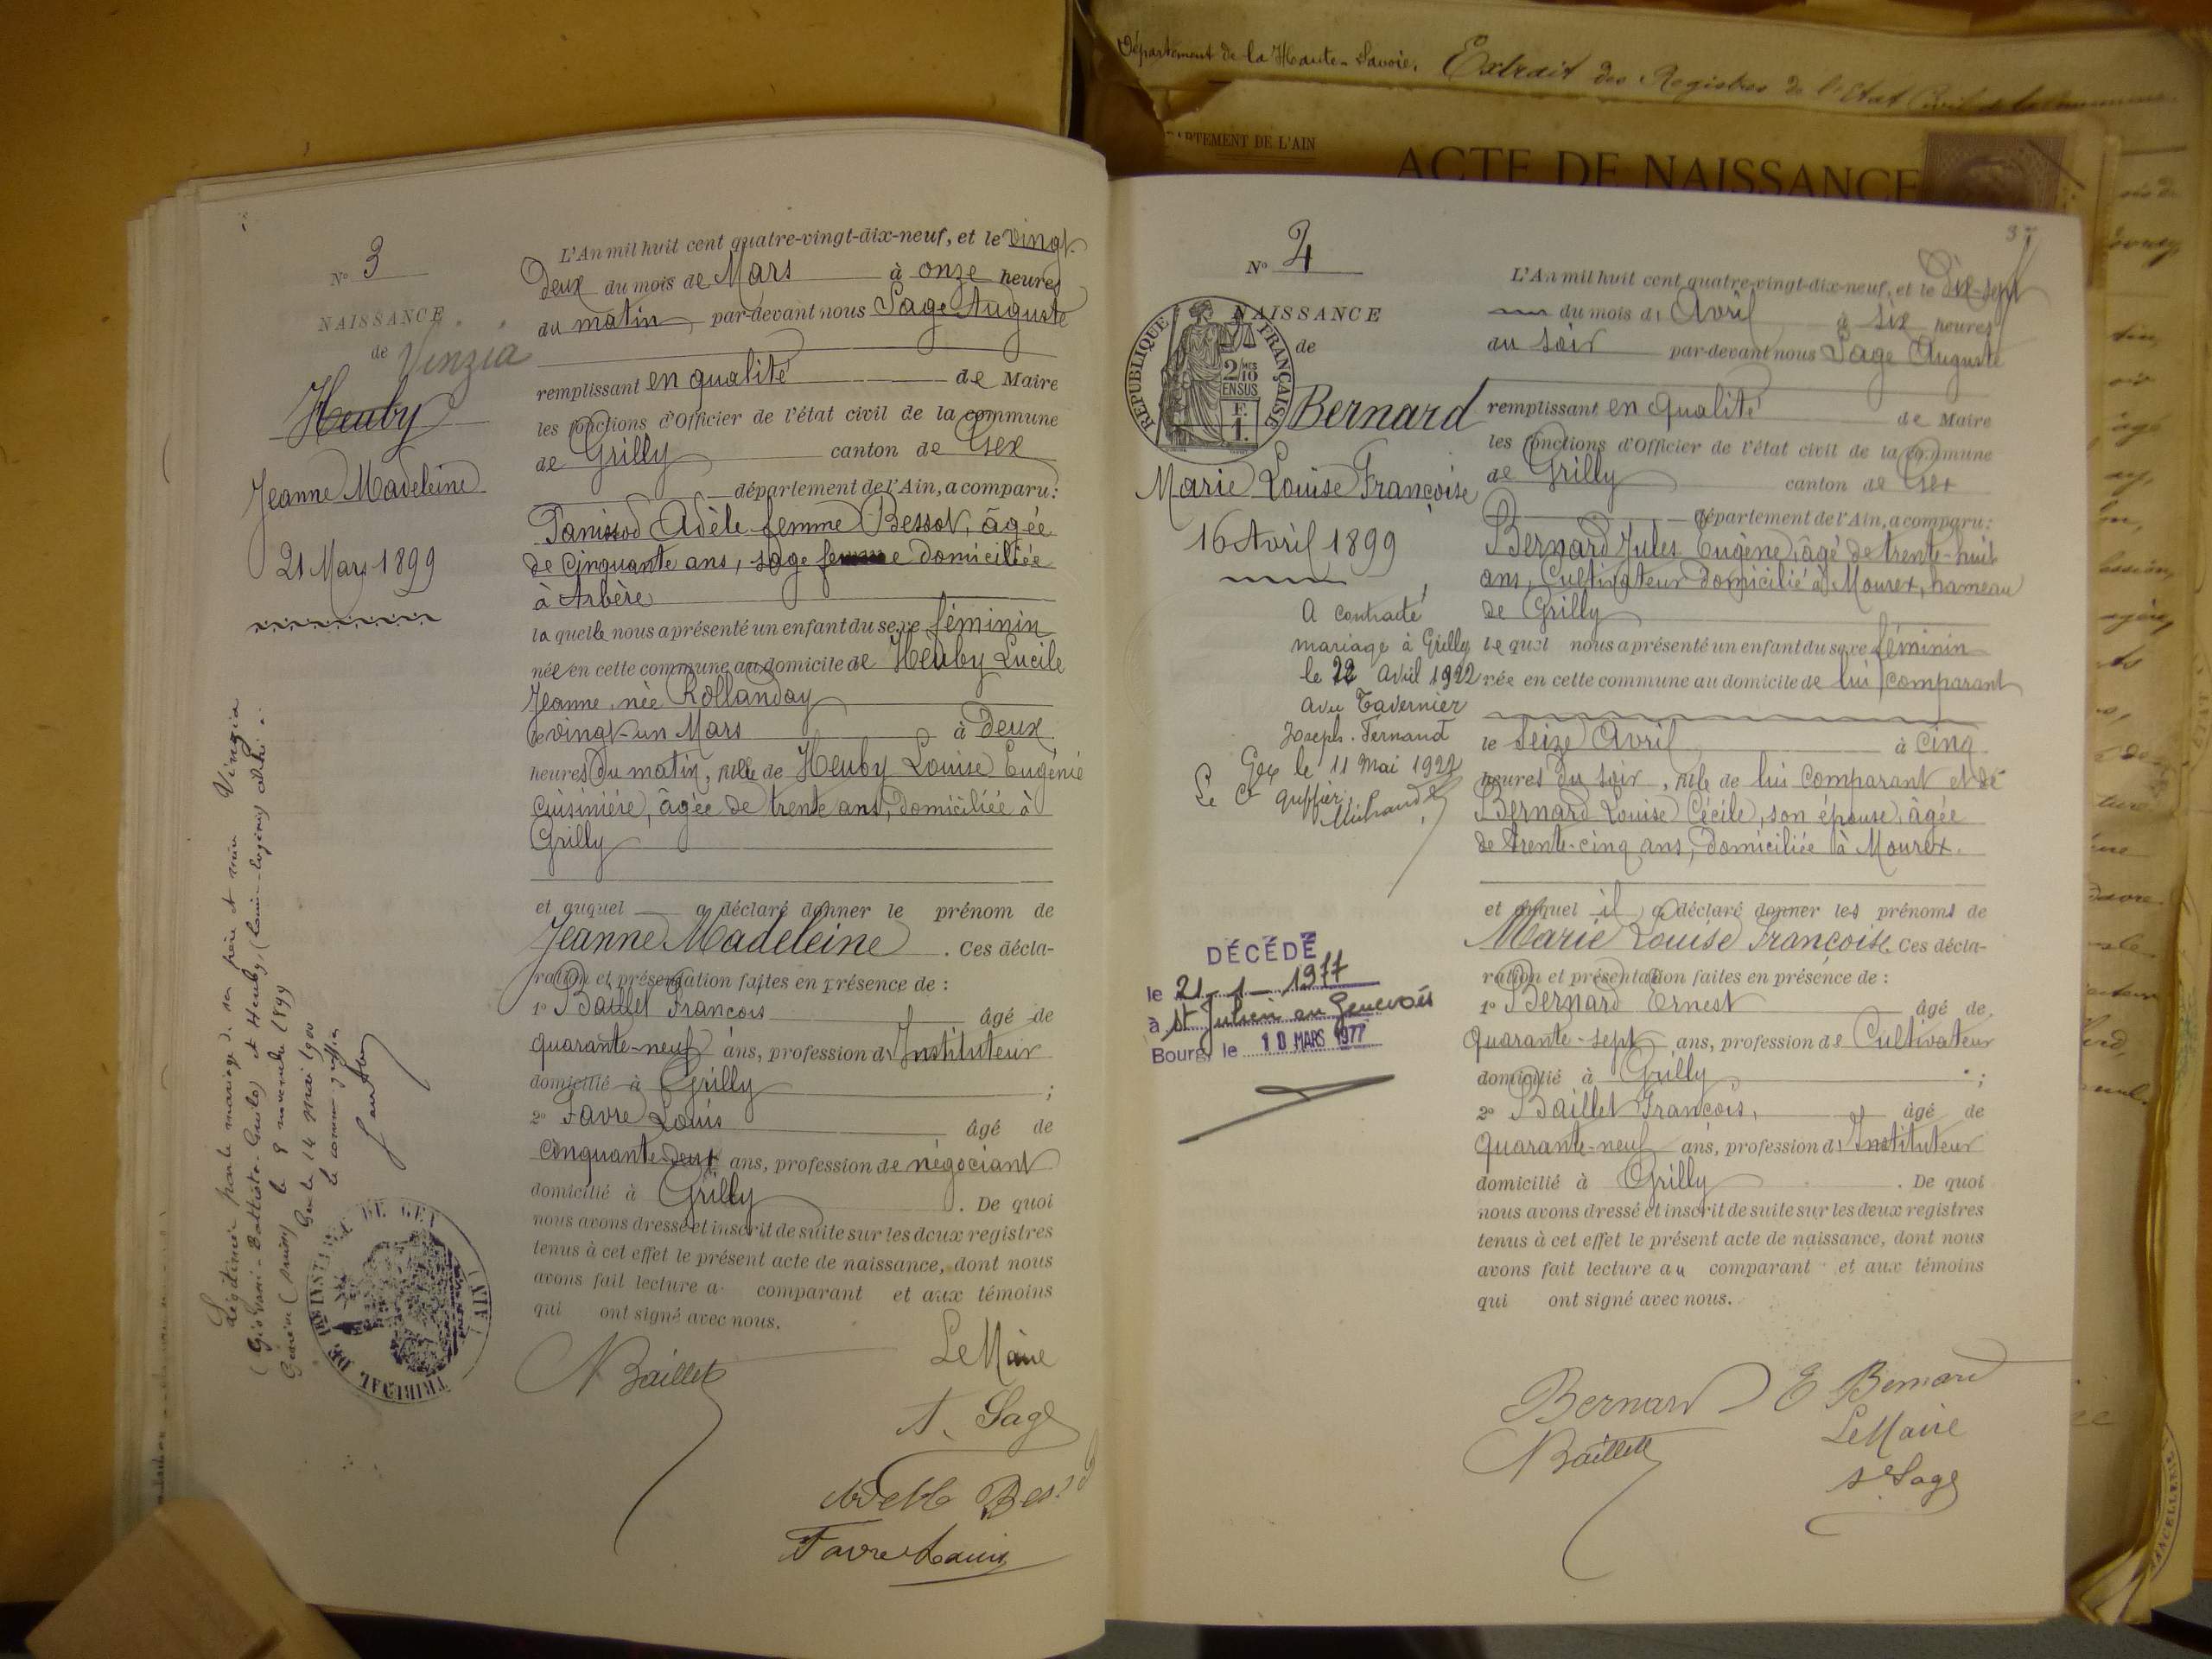 Département de la Haute-Savoie. Extrait des Registres de l'Etat Civil de la commune
DÉPARTEMENT DE L'AIN
ACTE DE NAISSANCE
N° 3
NAISSANCE
de Vinzia
Heuby
Jeanne Madeleine
21 Mars 1899
Légitimée par le mariage de ses père et mère Vinzia
(Giovani-Battista-) et Heuby, (Louise-Eugénie) célébré à
Genève (Suisse) le 8 novembre 1899
Gex le 14 Mai 1900
le commis greffier
TRIBUNAL DE 1re INSTANCE DE GEX (AIN)
L'An mil huit cent quatre-vingt-dix-neuf, et le vingt-
deux du mois de Mars à onze heures
du matin par-devant nous Sage Auguste
remplissant en qualité de Maire
les fonctions d'Officier de l'état civil de la commune
de Grilly canton de Gex
département de l'Ain, a comparu:
Panissod Adèle femme Bessot, âgée
de Cinquante ans, sage femme domiciliée
à Arbère
la quelle nous a présenté un enfant du sexe féminin
née en cette commune au domicile de Heuby Lucile
Jeanne, née Rollanday
le vingt-un Mars à Deux
heures du matin, fille de Heuby Louise Eugénie
Cuisinière, âgée de trente ans, domiciliée à
Grilly
et auquel a déclaré donner le prénom de
Jeanne Madeleine. Ces décla-
ration et présentation faites en présence de :
1° Baillet François âgé de
quarante-neuf ans, profession d'Instituteur
domicilié à Grilly ;
2° Favre Louis âgé de
Cinquante-deux ans, profession de négociant
domicilié à Grilly. De quoi
nous avons dressé et inscrit de suite sur les deux registres
tenus à cet effet le présent acte de naissance, dont nous
avons fait lecture a comparant et aux témoins
qui ont signé avec nous.
Baillet
Le Maire
A. Sage
Adèle
Favre Louis
37
N° 4
NAISSANCE
de
RÉPUBLIQUE FRANÇAISE
2/10 EN SUS
Bernard
Marie Louise Françoise
16 Avril 1899
A contracté
mariage à Grilly
le 22 Avril 1922
avec Tavernier
Joseph-Fernand
Gex le 11 Mai 1922
Le Cis greffier
DÉCÉDÉ
le 21-1-1977
à St Julien en Genevois
Bourg, le 10 MARS 1977
L'An mil huit cent quatre-vingt-dix-neuf, et le Dix-sept
du mois d'Avril à Six heures
du soir par-devant nous Sage Auguste
remplissant en qualité de Maire
les fonctions d'Officier de l'état civil de la commune
de Grilly canton de Gex
département de l'Ain, a comparu:
Bernard Jules Eugène, âgé de trente-huit
ans, Cultivateur domicilié à Mourex, hameau
de Grilly
le quel nous a présenté un enfant du sexe féminin
née en cette commune au domicile de lui comparant
le Seize Avril à Cinq
heures du soir, fille de lui Comparant et de
Bernard Louise Cécile, son épouse, âgée
de trente-cinq ans, domiciliée à Mourex.
et auquel il a déclaré donner les prénoms de
Marie Louise Françoise. Ces décla-
ration et présentation faites en présence de :
1° Bernard Ernest âgé de
quarante-sept ans, profession de Cultivateur
domicilié à Grilly ;
2° Baillet François, âgé de
quarante-neuf ans, profession d'Instituteur
domicilié à Grilly. De quoi
nous avons dressé et inscrit de suite sur les deux registres
tenus à cet effet le présent acte de naissance, dont nous
avons fait lecture au comparant et aux témoins
qui ont signé avec nous.
Bernard E Bernard
Baillet
Le Maire
A. Sage